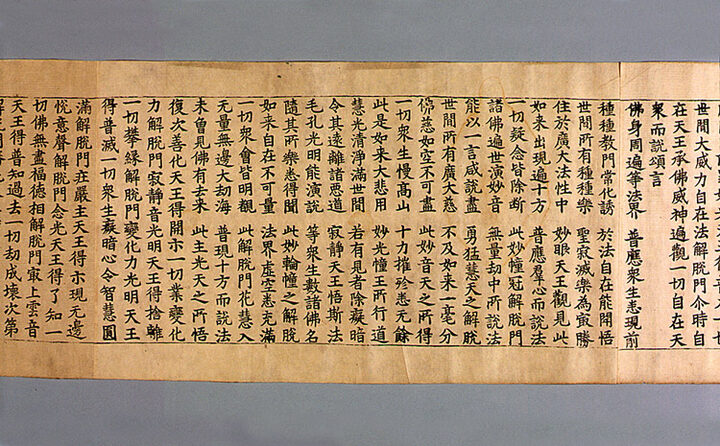 世間大威力自在法解脫門尒時自
在天王承佛威神遍觀一切自在天
衆而說頌言
佛身周遍等法界 普應衆生悉現前
種種教門常化誘 於法自在能開悟
世間所有種種樂 聖寂滅樂為㝡勝
住於廣大法性中 妙眼天王觀見此
如來出現遍十方 普應羣心而說法
一切疑念皆除斷 此妙幢冠解脫門
諸佛遍世演妙音 無量劫中所說法
能以一言咸說盡 勇猛慧天之解脫
世間所有廣大慈 不及如來一毫分
佛慈如空不可盡 此妙音天之所得
一切衆生慢高山 十力摧殄悉无餘
此是如來大悲用 妙光幢王所行道
慧光清淨滿世間 若有見者除癡暗
令其遠離諸惡道 寂靜天王悟斯法
毛孔光明能演說 等衆生數諸佛名
隨其所樂悉得聞 此妙輪幢之解脫
如來自在不可量 法界虛空悉充滿
一切衆會皆明覩 此解脫門花慧入
無量無邊大劫海 普現十方而說法
未曾見佛有去來 此主光天之所悟
復次善化天王得開示一切業變化
力解脫門寂靜音光明天王得捨離
一切攀緣解脫門變化力光明天王
得普滅一切衆生癡暗心令智慧圓
滿解脫門莊嚴主天王得示現无邊
悅意聲解脫門念光天王得了知一
切佛無盡福德相解脫門㝡上雲音
天王得普知過去一切劫成壞次第